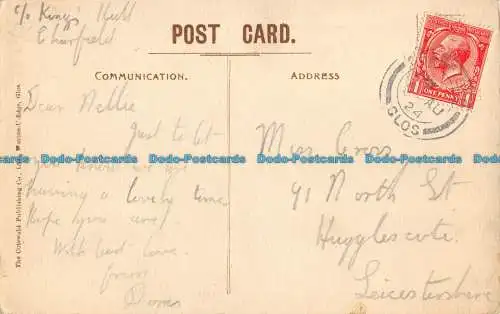 c/o King's
Charfield
POST CARD.
COMMUNICATION.
ADDRESS
ONE PENNY
AU
24
GLOS
Dear Nellie
Just to let
you know we are
having a lovely time
hope you are!
With best love
from
Miss Cross
91 North St
Hugglescote
Leicestershire
The Cotswold Publishing Co., Wotton-U-Edge, Glos.
Dodo-Postcards Dodo-Postcards Dodo-Postcards Dodo-Postcards Dodo-Postcards